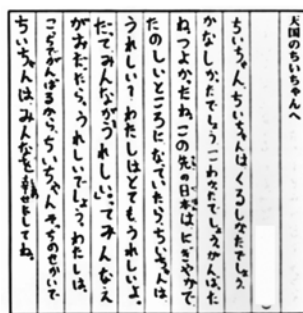 天国のちいちゃんへ
ちいちゃん、ちいちゃんはくるしかったでしょう。
かなしかったでしょう。こわかったでしょう。がんばった
ね。つよかったね。この先の日本は、にぎやかで
たのしいところになっていたら、ちいちゃんは
うれしい？わたしはとてもうれしいよ。
だってみんなが「うれしい。」ってみんなえ
がおだったら、うれしいでしょう。わたしは、
こっちでがんばるから、ちいちゃんそっちのせかいで
ちいちゃんは、みんなを幸せにしてね。